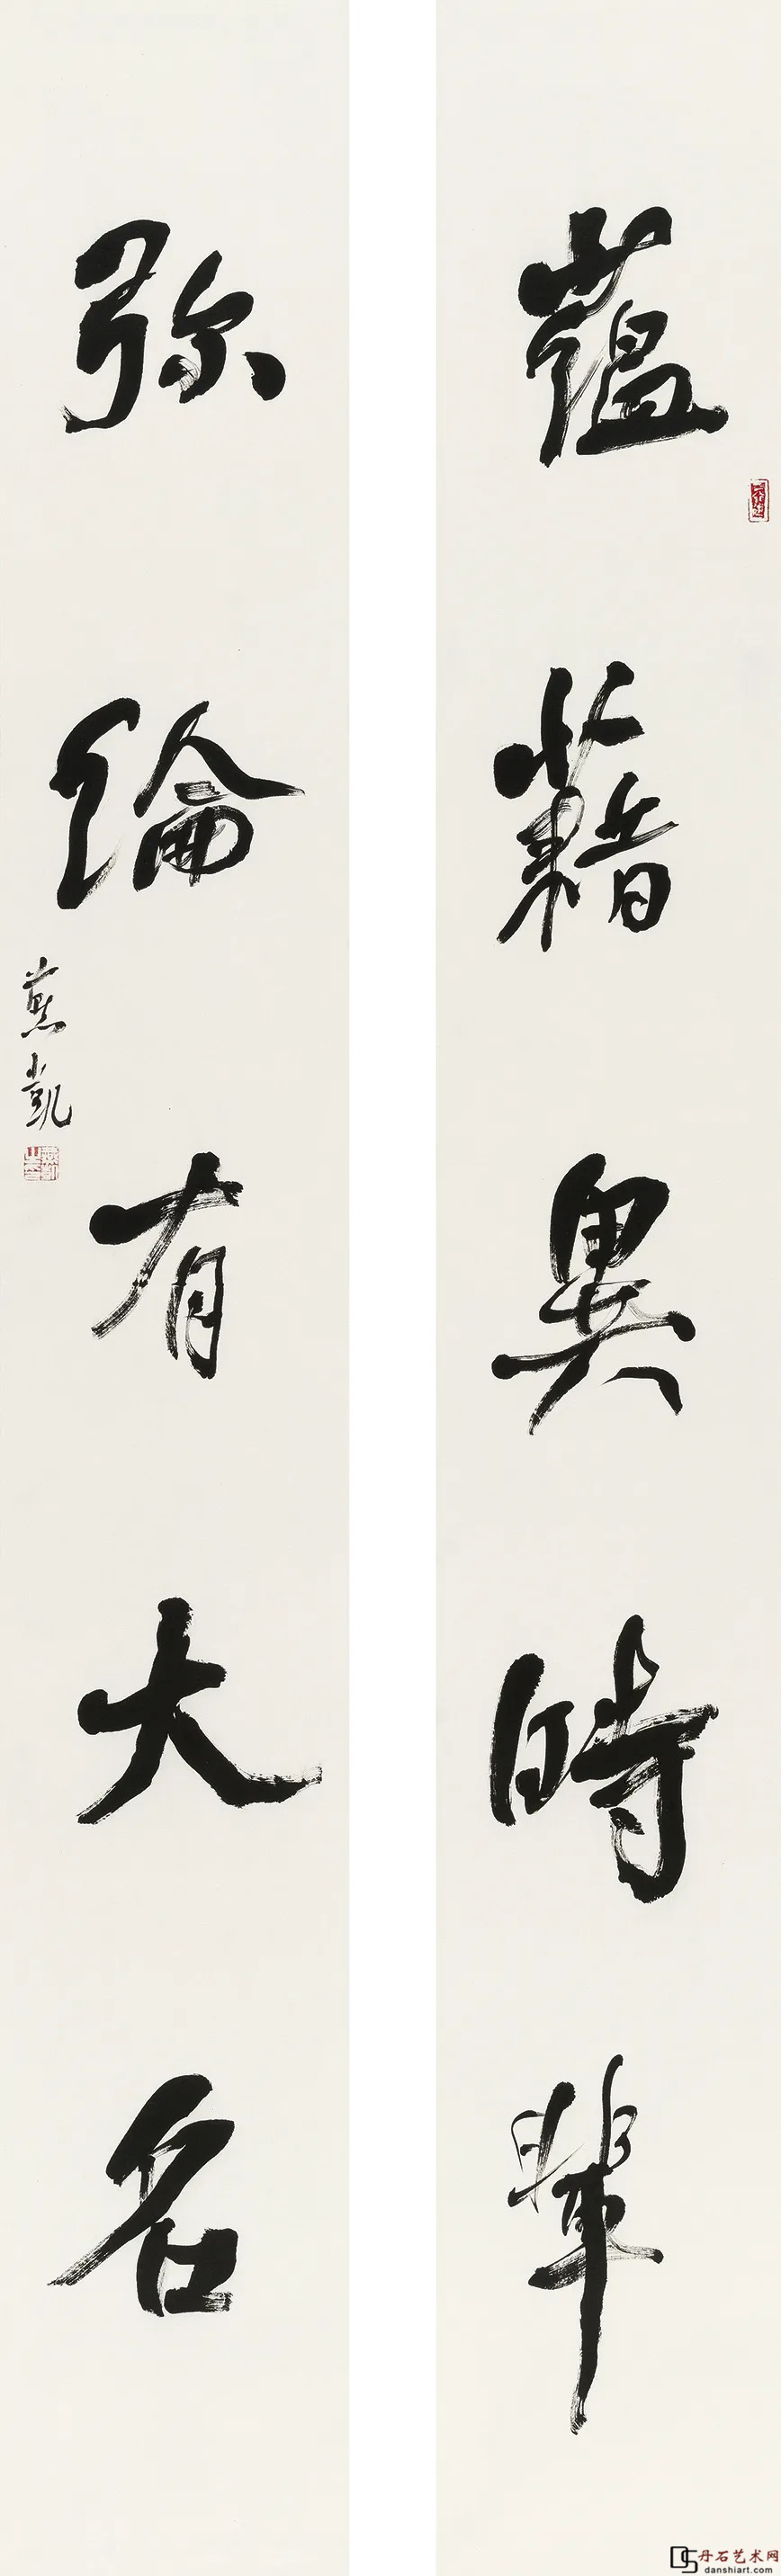 蘊藉異時輩
弥綸有大名
燕凱
丹石艺术网
danshiart.com